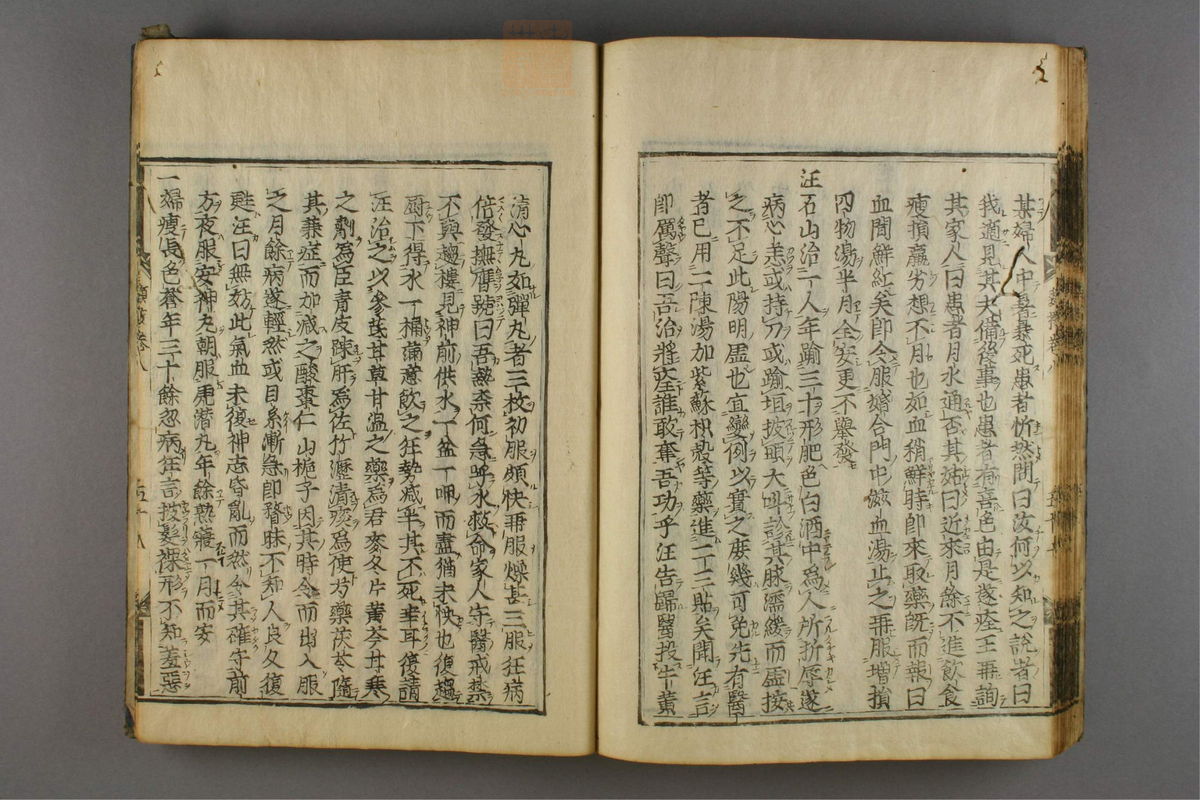 某婦人中暑暴死患者忻然問曰汝何以知之說者曰
我適見其夫備後事也患者有喜色由是遂痊王再詢
其家人曰患者月水通否其姑曰近來月餘不進飲食
瘦損羸劣想不月也如血稍鮮時即來取藥既而報曰
血間鮮紅矣即令服婚合門中滋血湯止之再服增損
四物湯半月全安更不舉發
汪石山治一人年踰三十形肥色白酒中為人所折辱遂
病心恙或持刀或踰垣披頭大叫診其脉濡緩而虛按
之不足此陽明虛也宜變例以實之庶幾可免先有醫
者已用二陳湯加紫蘇枳殼等藥進二三貼矣聞汪言
即厲聲曰吾治將痊誰敢奪吾功乎汪告歸醫投牛黃
清心丸如彈丸者三枚初服頗快再服燥甚三服狂病
倍發撫膺號曰吾熱奈何急呼水救命家人守醫戒禁
不與趨樓見神前供水一盆一呷而盡猶未快也復趨
厨下得水一桶滿意飲之狂勢減半其不死幸耳復請
汪治之以參芪甘草甘溫之藥為君麥冬片黃芩甘寒
之劑為臣青皮陳肝為佐竹瀝清痰為使芍藥茯苓隨
其兼症而加減之酸棗仁山梔子因其時令而出入服
之月餘病遂輕然或目系漸急即瞀昧不知人良久復
甦汪曰無妨此氣血未復神志昏亂而然令其確守前
方夜服安神丸朝服虎潛丸年餘熟寢一月而安
一婦瘦長色蒼年三十餘忽病狂言披髮裸形不知羞惡